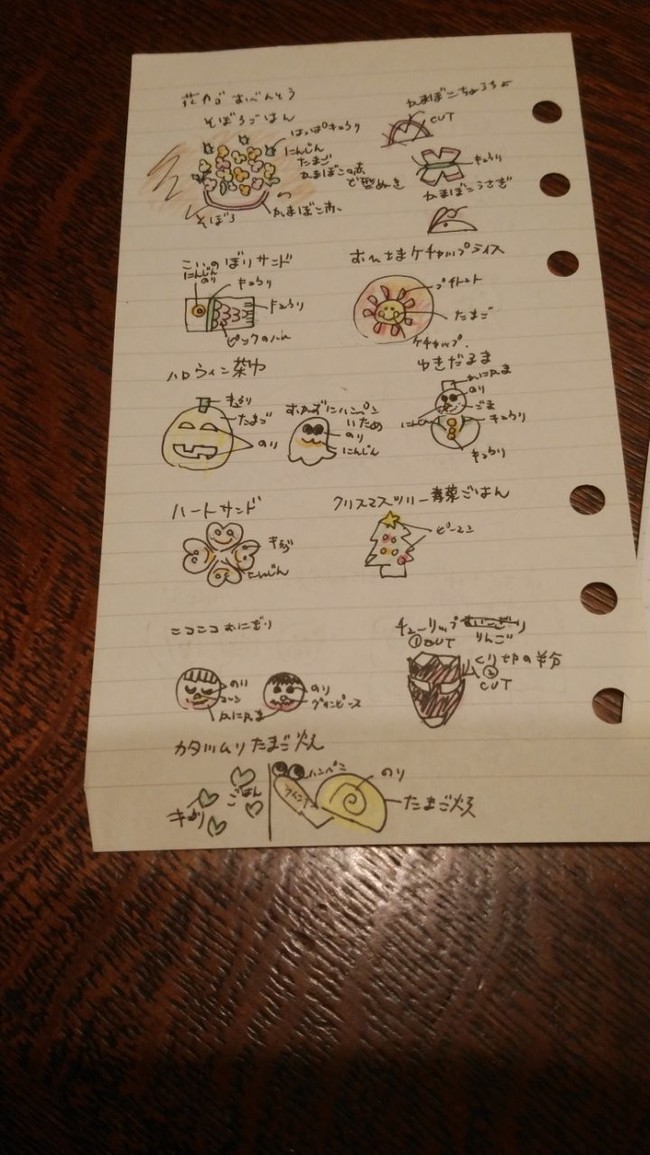 花カゴおべんとう
そぼろごはん
はっぱきゅうり
にんじん
たまご
かまぼこの赤
で型ぬき
かまぼこ赤
そぼろ
かまぼこちょうちょ
CUT
きゅうり
かまぼこうさぎ
こいのぼりサンド
にんじん
のり
きゅうり
きゅうり
ピックの
おひさまケチャップライス
プチトマト
たまご
ケチャップ
ハロウィン茶巾
きゅうり
たまご
のり
おばけハンペン
いため
のり
にんじん
ゆきだるま
かにかま
のり
ごま
にんじん
きゅうり
きゅうり
ハートサンド
きゅうり
にんじん
クリスマスツリー青菜ごはん
ピーマン
ニコニコおにぎり
のり
コーン
かにかま
のり
グリンピース
チューリップ
りんご
①CUT
くし切の半分
②
CUT
カタツムリたまご焼
ごはん
きゅうり
ハンペン
ウインナ
のり
たまご焼